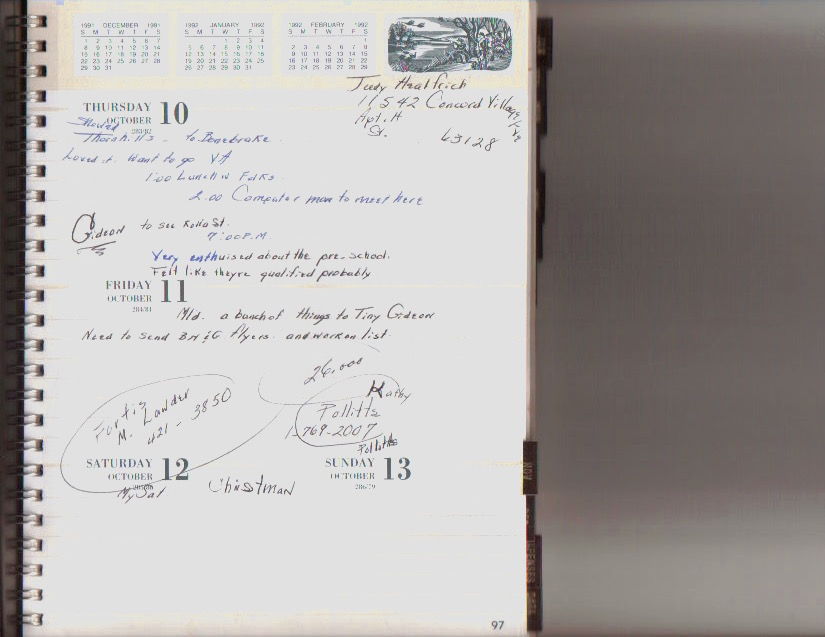 1991 DECEMBER 1991
S M T W T F S
1 2 3 4 5 6 7
8 9 10 11 12 13 14
15 16 17 18 19 20 21
22 23 24 25 26 27 28
29 30 31
1992 JANUARY 1992
S M T W T F S
1 2 3 4
5 6 7 8 9 10 11
12 13 14 15 16 17 18
19 20 21 22 23 24 25
26 27 28 29 30 31
1992 FEBRUARY 1992
S M T W T F S
1
2 3 4 5 6 7 8
9 10 11 12 13 14 15
16 17 18 19 20 21 22
23 24 25 26 27 28 29
Judy
11542 Concord Village
Apt. H
St. 63128
THURSDAY 10
OCTOBER
283/82
Showed
to Bonebrake
Loved it want to go VA
1:00 Lunch w Folks
2:00 Computer man to meet here
Gideon to see Rolla St.
7:00 P.M.
Very enthuised about the pre-school.
Felt like theyre qualified probably
FRIDAY 11
OCTOBER
284/81
Mld. a banch of things to Tiny Gideon
Need to send BH&G flyers. and work on list.
26,000
Fortis
M. Lawder
421-3850
Kathy
Pollitts
1-769-2007
Pollitts
SATURDAY 12
OCTOBER
285/80
My Sat
Christman
SUNDAY 13
OCTOBER
286/79
NOV
EXPENSES
97